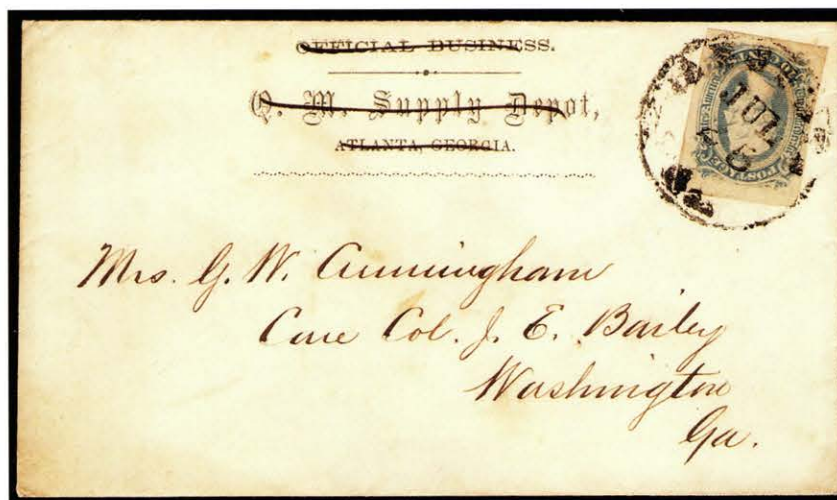 OFFICIAL BUSINESS.
Q. M. Supply Depot,
ATLANTA, GEORGIA.
JUL
POSTAGE
Mrs. G. W. Cunningham
Care Col. J. E. Bailey
Washington
Ga.